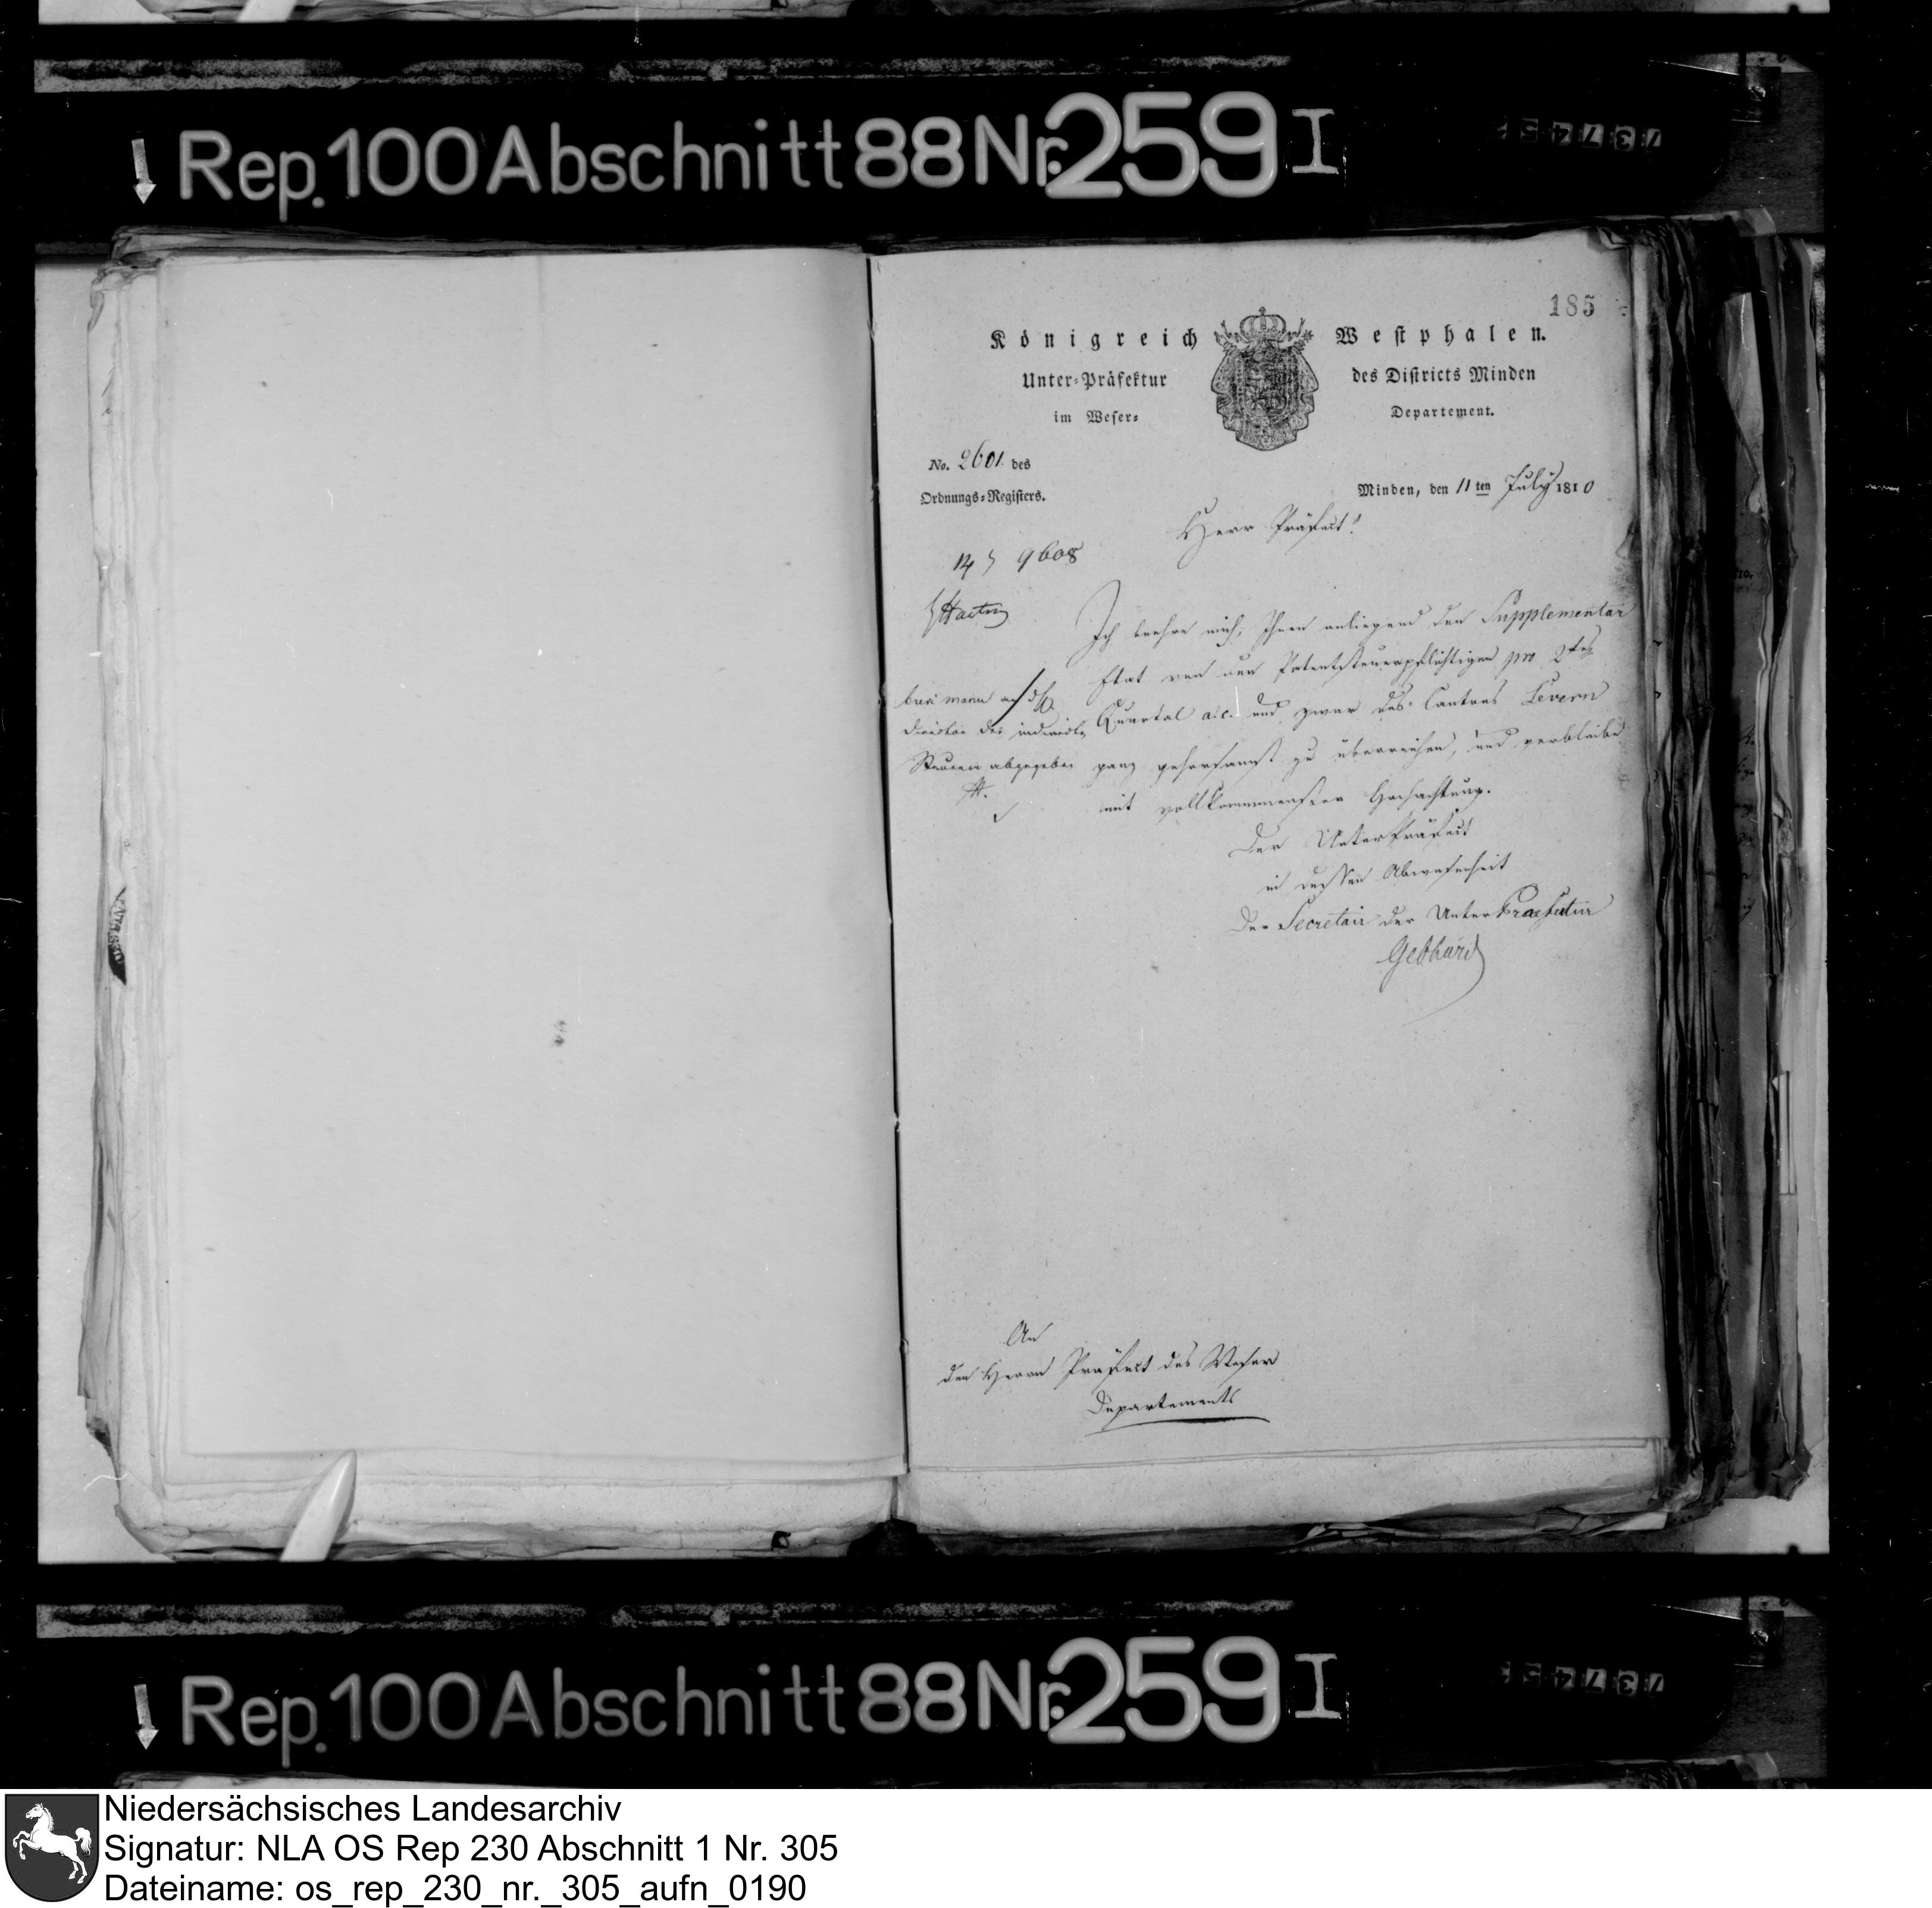 Rep. 100 Abschnitt 88 Nr. 259 I
185
Königreich Westphalen.
Unter-Präfektur des Districts Minden
im Weser- Departement.
No. 2601 des
Ordnungs-Registers.
Minden, den 11ten July 1810
Herr Präfect!
9608
Ich beehre mich, Ihnen anliegend den Supplementar
Etat von den Patentsteuerpflichtigen pro 2tes
Quartal a.c. und zwar des Cantons Levern
ganz gehorsamst zu überreichen, und verbleibe
mit vollkommenster Hochachtung.
br. m. an d.
Director der indirecten
Steuern abgegeben
Der Unterpräfect
in dessen Abwesenheit
Der Secretair der Unter Praefectur
Gebhard
An
den Herrn Präfect des Weser
Departements
Rep. 100 Abschnitt 88 Nr. 259 I
Niedersächsisches Landesarchiv
Signatur: NLA OS Rep 230 Abschnitt 1 Nr. 305
Dateiname: os_rep_230_nr._305_aufn_0190